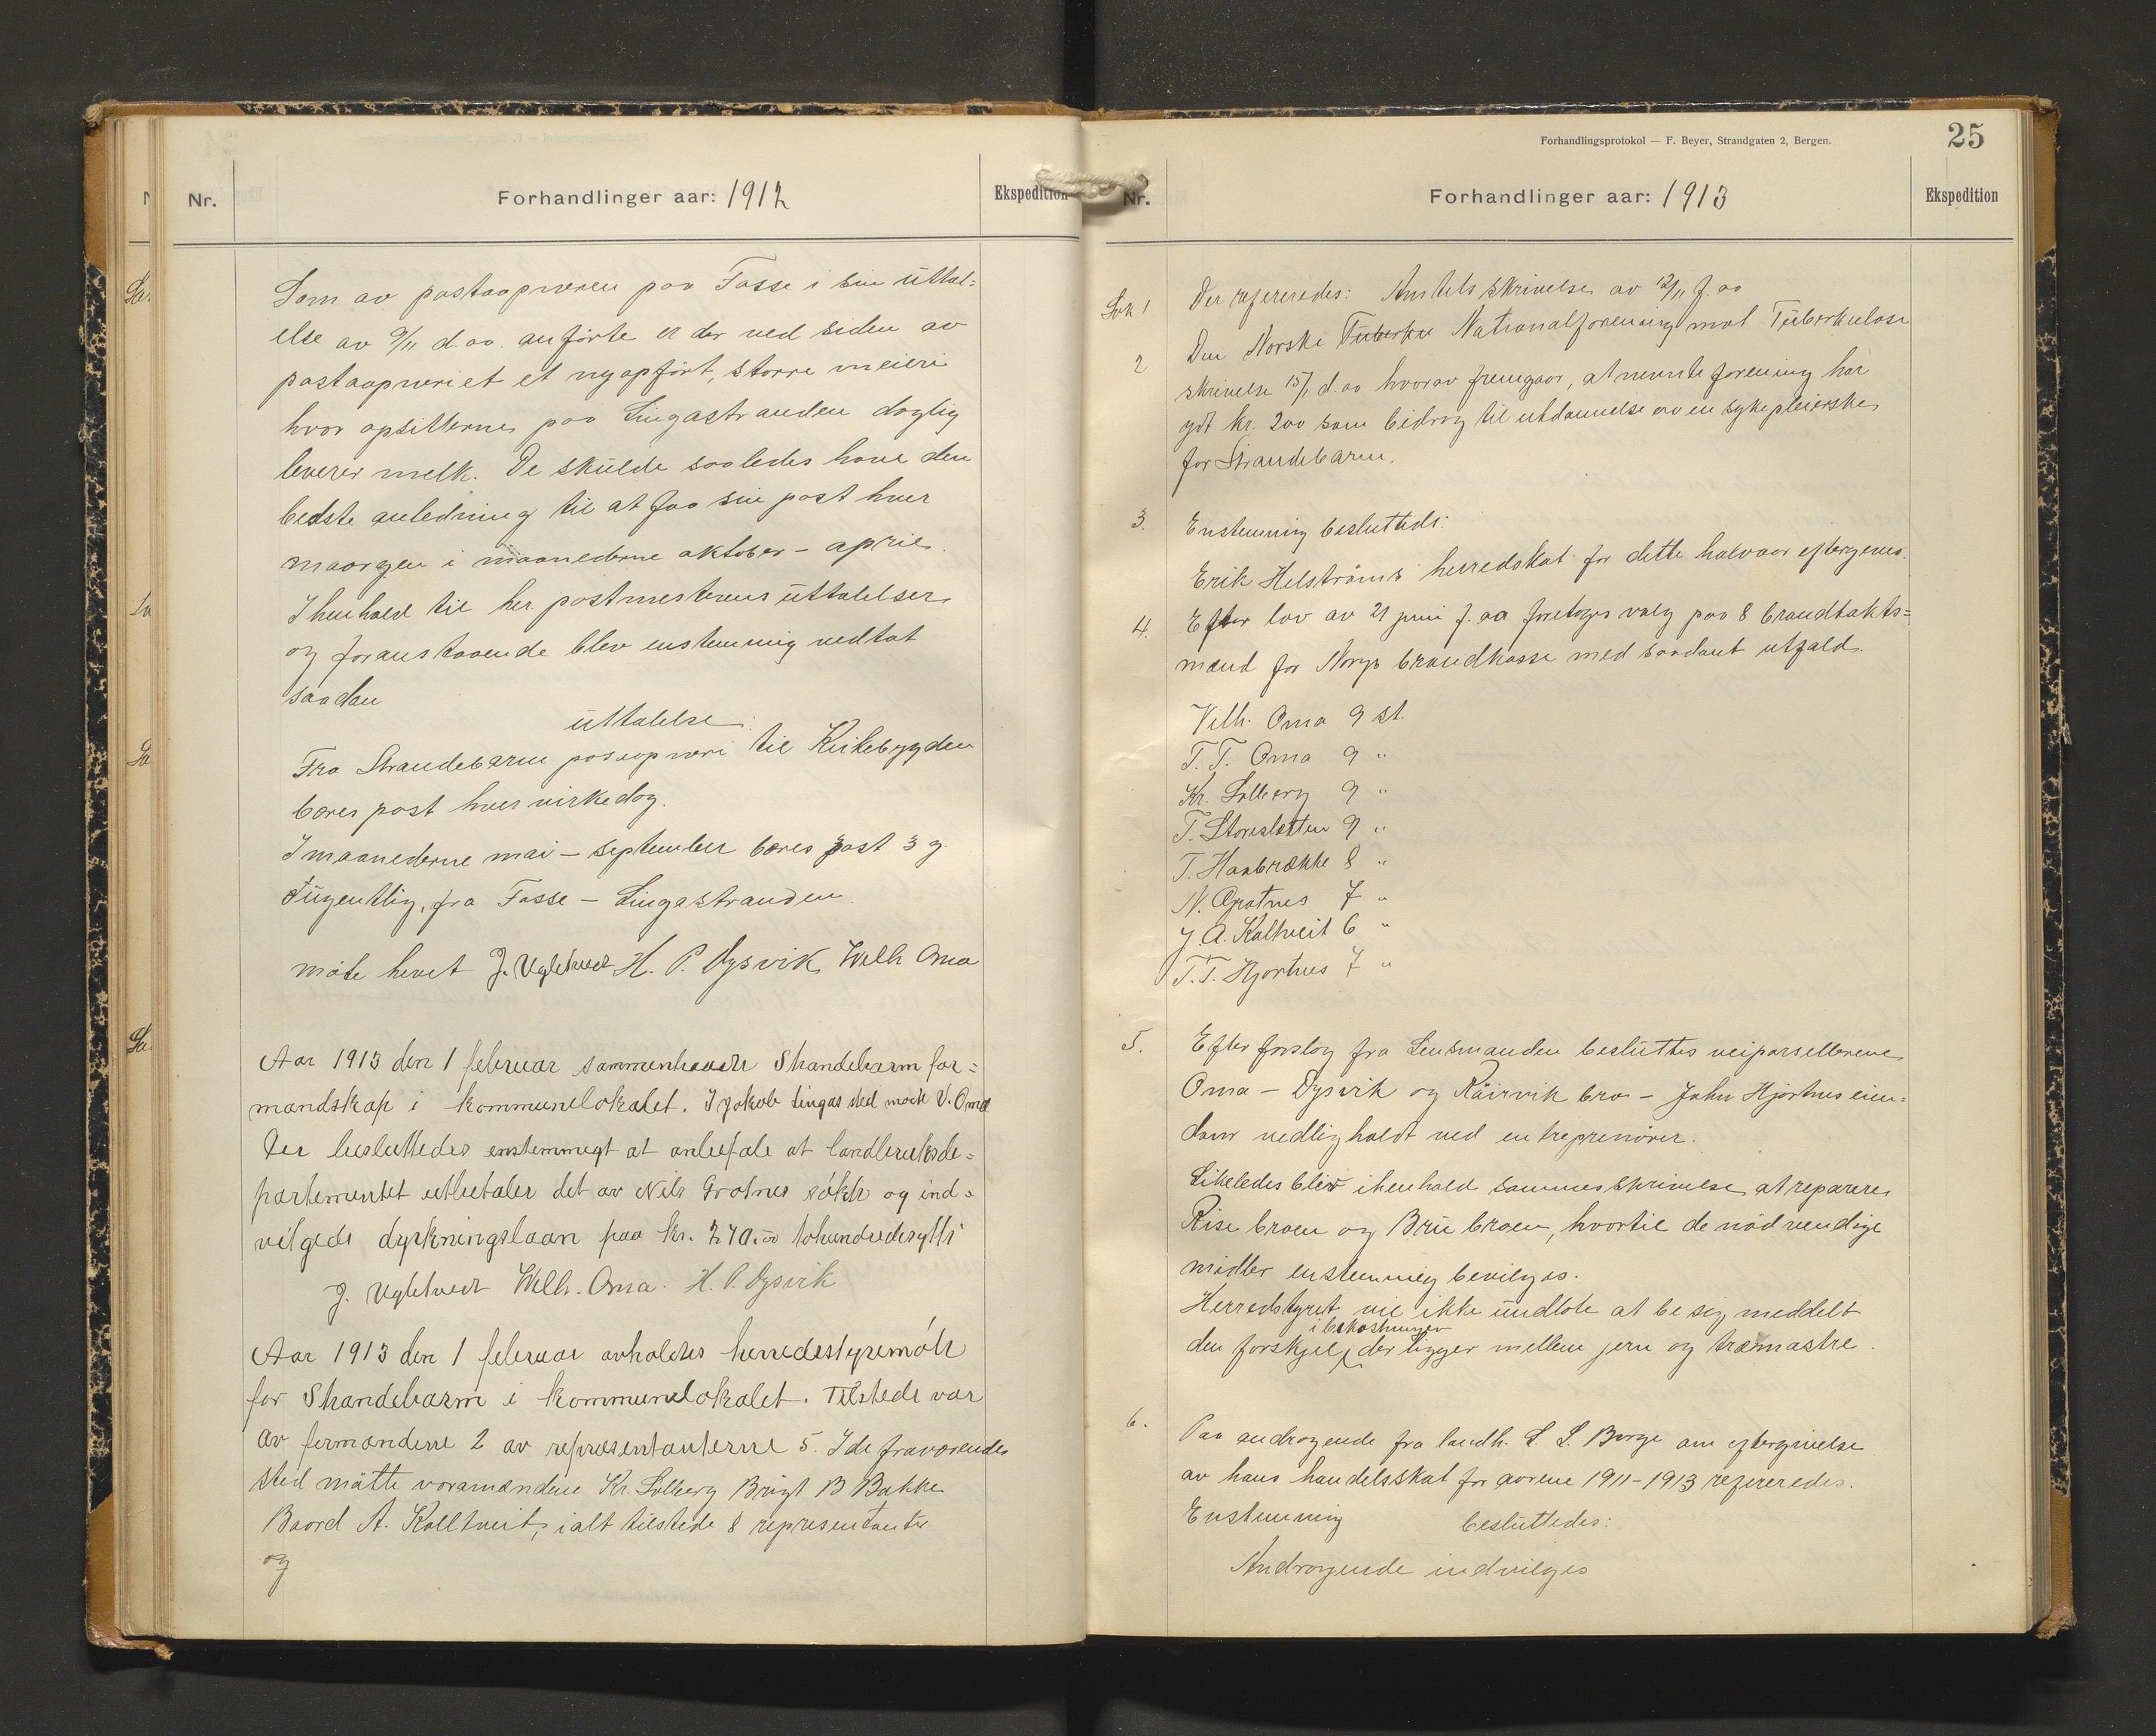 Nr.
Forhandlinger aar: 1912
Ekspedition
Som av postaapneren paa Fosse i sin uttal=
else av 9/11 d. aa. anförte er der ved siden av
postaapneriet et nyopfört, större meieri
hvor opsitterne paa Lingastranden daglig
leverer melk. De skulde saaledes have den
bedste anledning til at faa sin post hver
maargen i maanederne oktober – april.
I henhold til hr. postmesterens uttalelser
og foranstaaende blev enstemmig vedtat
saadan
uttalelse:
Fra Strandebarm posaapneri til Kirkebygden
bæres post hver virkedag.
I maanederne mai – september bæres post 3 g.
ugentlig, fra Fosse – Lingastranden.
möte hevet J. Ugletveit H. P. Dysvik Wilh Oma
Aar 1913 den 1 februar sammentraadte Strandebarm for=
mandskap i kommunelokalet. I Jakob Lingas sted mötte V. Oma
Der besluttedes enstemmigt at anbefale at landbruksde=
partementet utbetaler det av Nils Grotnes sökte og ind=
vilgede dyrkningslaan paa kr. 270.00 tohundredesytti
J. Ugletveit Wilh. Oma. H. P. Dysvik
Aar 1913 den 1 februar avholdtes herredsstyremöte
for Strandebarm i kommunelokalet. Tilstede var
av formændene 2 av repræsentanterne 5. I de fraværendes
sted mötte varamændene Kr. Solberg Brigt B Bakke
Baard A. Kaltveit, ialt tilstede 8 representanter
og
Forhandlingsprotokol — F. Beyer, Strandgaten 2, Bergen.
25
Nr.
Forhandlinger aar: 1913
Ekspedition
Sak 1 Der refereredes: Amtets skrivelse av 12/11 f. aa
2 Den Norske Tuberku Nationalforening mot Tuberkulose
skrivelse 15/1 d. aa hvorav fremgaar, at nevnte forening har
gdt kr. 200 som bidrag til utdannelse av en sykepleierske
for Strandebarm.
3. Enstemmig besluttedes:
Erik Helströms herredskat for dette halvaar eftergives.
4. Efter lov av 21 juni f. aa foretoges valg paa 8 brandtakts=
mænd for Norges brandkasse med saadant utfald.
Vilh. Oma 9 st.
T. T. Oma 9 "
Kr. Solberg 9 "
T. Storesletten 9 "
T. Haabrække 8 "
N. Grotnes 7 "
J. A. Kaltveit 6 "
T. T. Hjortnes 7 "
5. Efter forslag fra Lensmanden besluttes veiparsellerene
Oma – Dysvik og Röirvik bro – John Hjortnes eien=
dom vedligholdt ved entreprenörer.
Likeledes blev ihenhold sammes skrivelse at reparere
Rise broen og Bru broen, hvortil de nödvendige
midler enstemmig bevilges.
Herredstyret vil ikke undlate at be sig meddelt
i bekostninger
den forskjel der ligger mellem jern og træmastre.
6. Paa andragende fra landh. L. L. Berge om eftergivelse
av hans handelsskat for aarene 1911-1913 refereredes.
Enstemmig besluttedes:
Andragende indvilges